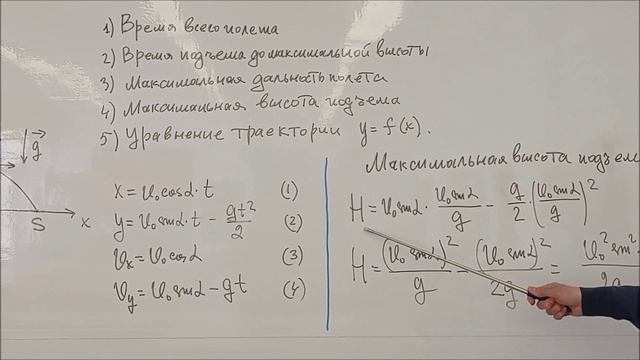 1) Время всего полета
2) Время подъема до максимальной высоты
3) Максимальная дальность полёта
4) Максимальная высота подъема
5) Уравнение траектории y = f(x).
g
S x
x = υ₀cosα · t (1)
y = υ₀sinα · t − gt²/2 (2)
υₓ = υ₀cosα (3)
υᵧ = υ₀sinα − gt (4)
Максимальная высота подъем
H = υ₀sinα · υ₀sinα/g − g/2 · (υ₀sinα/g)²
H = (υ₀sinα)²/g − (υ₀sinα)²/2g = υ₀²sin²